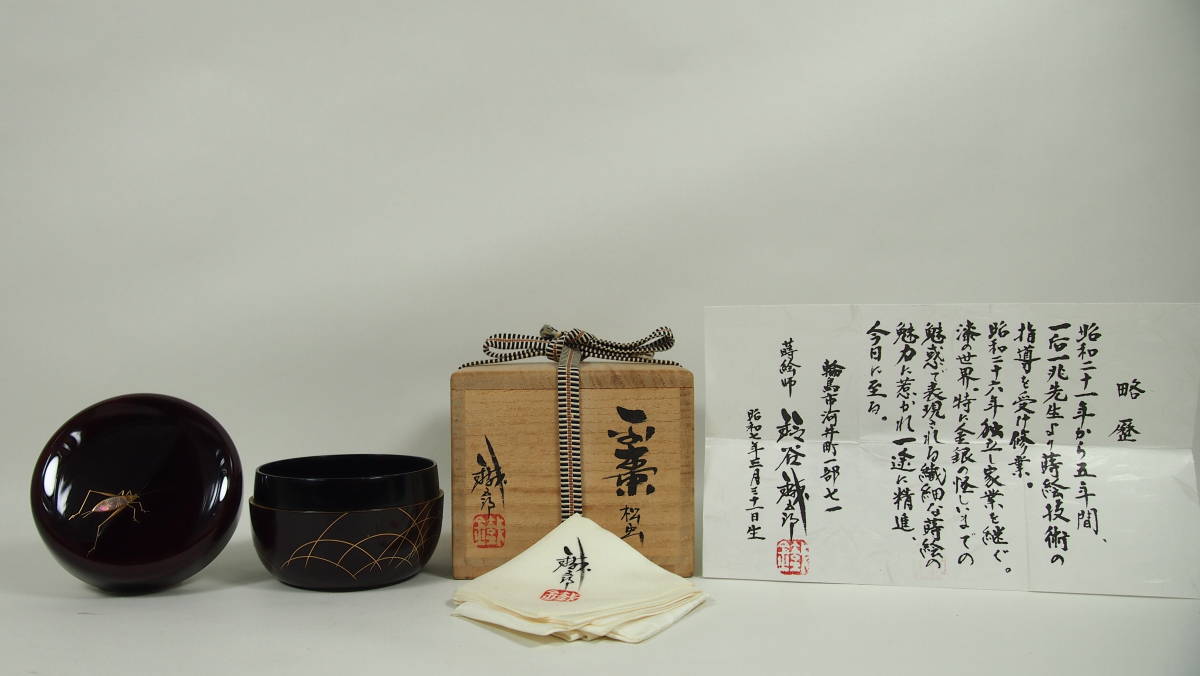 略歴
昭和二十一年から五年間、
一后一兆先生より蒔絵技術の
指導を受け修業。
昭和二十六年独立し家業を継ぐ。
漆の世界、特に金銀の怪しいまでの
魅惑で表現される繊細な蒔絵の
魅力に惹かれ一途に精進、
今日に至る。
輪島市河井町一部七一
蒔絵師 鈴谷鐵五郎
昭和七年三月三十一日生
平棗
松虫
鐵五郎
鐵五郎